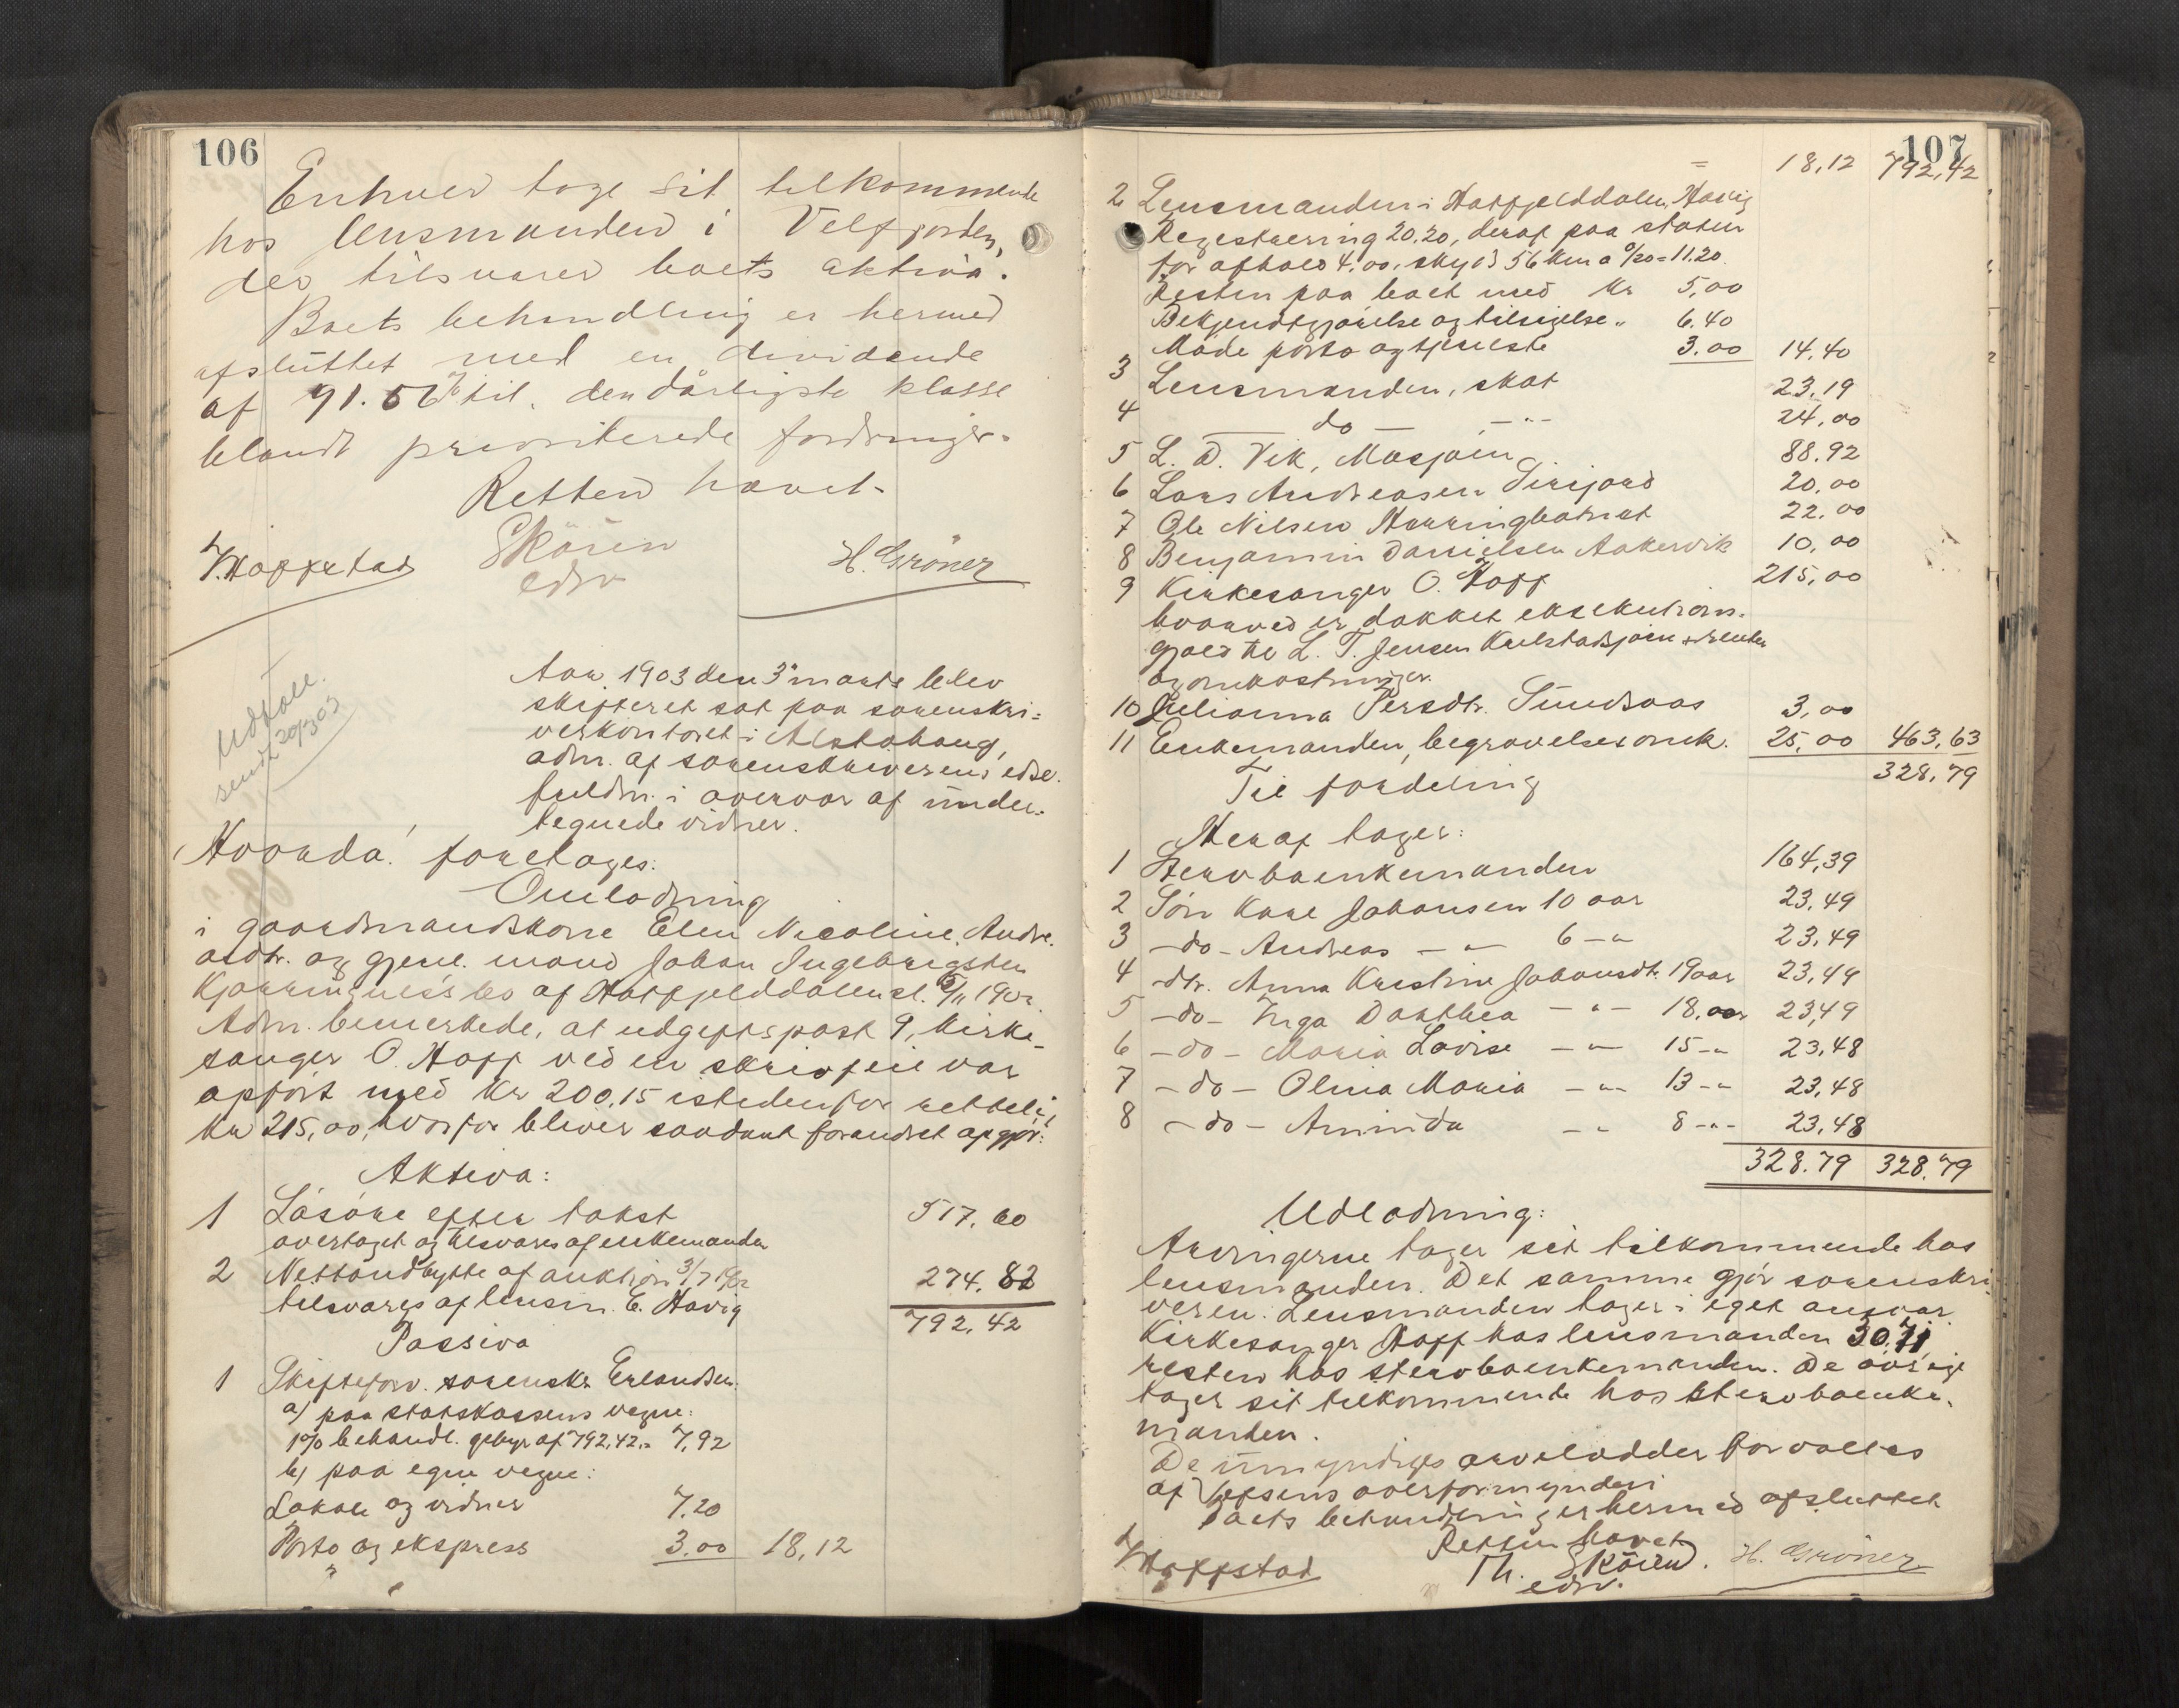 106
Enhver tage sit tilkommende
hos lensmanden i Velfjorden,
der tilsvarer boets aktiva.
Boets behandling er hermed
afsluttet med en dividende
af 91.56 % til den dårligste klasse
blandt prioriterede fordringer.
Retten hævet.
Skören
edsv
H. Gröner
Udskr.
sendt 20/3 03
Aar 1903 den 3 marts blev
skifteret sat paa sorenskri-
verkontoret i Alstahaug,
adm. af sorenskriverens edsv.
fuldm. i overvær af under-
tegnede vidner.
Hvorda! foretages:
Omlodning
i gaardmandskone Elen Nicoline Andre-
asdtr. og gjenl. mand Johan Ingebrigtsen
bo af Hatfjelddalen
Adm. bemerkede, at udgiftspost 9, kirke-
sanger O. Hoff ved en skrivfeil var
opført med kr 200,15 istedenfor rettelig
kr 215,00, hvorfor bliver saadant forandret opgjör:
Aktiva:
1 Lösöre efter takst 517.60
overtaget og tilsvares af enkemanden
2 Nettoudbytte af auktion 3/7 1902 274.82
tilsvares af lensm. E. Havig 792.42
Passiva
1 Skifteforv. sorenskr. Erlandsen:
a) paa statskassens vegne:
1% behandl. gebyr af 792,42 = 7,92
b) paa egne vegne:
Lokale og vidner 7.20
Porto og ekspress 3.00 18,12
107
= 18,12 792,42
2 Lensmanden i Hatfjelddalen, Havig
Registrering 20.20, deraf paa staten
for afhold 4,00, skyds 56 km a 0/20 = 11.20
Resten paa boet med kr 5,00
Bekjendtgjörelse og tilsigelse " 6.40
Möde porto og tjeneste 3.00 14,40
3 Lensmanden, skat 23,19
4 — do — — " — 24,00
5 L. D. Vik, Mosjøen 88.92
6 Lars Andreasen 20,00
7 Ole Nilsen 22.00
8 Benjamin Danielsen Aakervik 10,00
9 Kirkesanger O. Hoff 215,00
hvorved er dækket eksekutions-
gjæld til L. T. Jensen + renter
og omkostninger.
10 Julianna Persdtr. 3,00
11 Enkemanden, begravelsesomk. 25,00 463,63
Til fordeling 328,79
Heraf tager:
1 Stervboenkemanden 164,39
2 Sön Karl Johansen 10 aar 23,49
3 - do - Andreas — " — 6 - " 23,49
4 - dtr. Anna Kristine Johansdt. 19 aar 23,49
5 - do - Inga Dorthea — " — 18. aar 23,49
6 - do - Maria Lovise — " — 15 - " 23,48
7 - do - Olina Maria — " — 13 - " 23,48
8 - do - Aminda — " 8 - " - 23,48
328.79 328.79
Udlodning:
Arvingerne tager sit tilkommende hos
lensmanden. Det samme gjör sorenskri-
veren. Lensmanden tager i eget ansvar.
Kirkesanger Hoff hos lensmanden 30.71
resten hos stervboenkemanden. De övrige
tager sit tilkommende hos stervboenke-
manden.
De umyndiges arvelodder forvaltes
af Vefsens overformynderi
Boets behandling er hermed afsluttet
Retten hævet
Th. Skören.
edsv.
H. Gröner